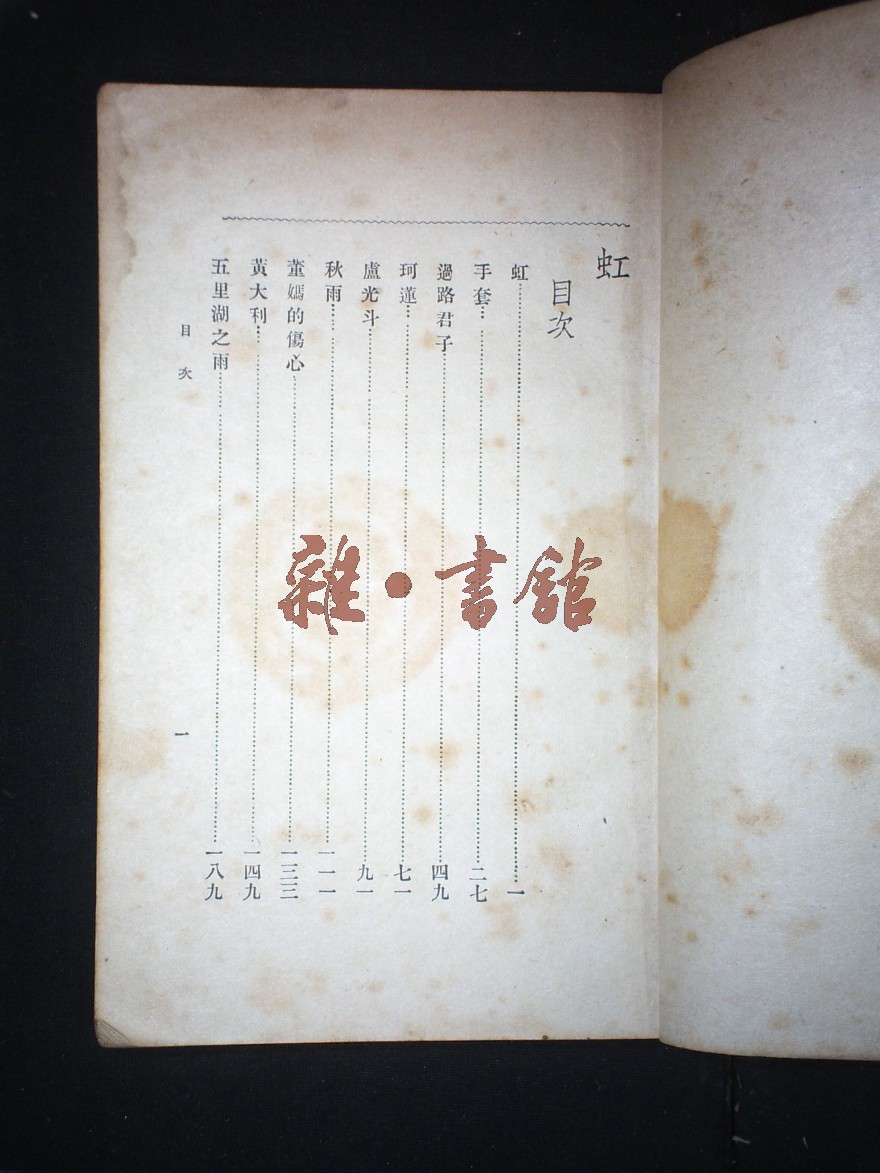 虹
目次
虹…………一
手套…………二七
過路君子…………四九
珂蓮…………七一
盧光斗…………九一
秋雨…………一一一
董嫣的傷心…………一三三
黃大利…………一四九
五里湖之雨…………一八九
目次
一
雜·書館